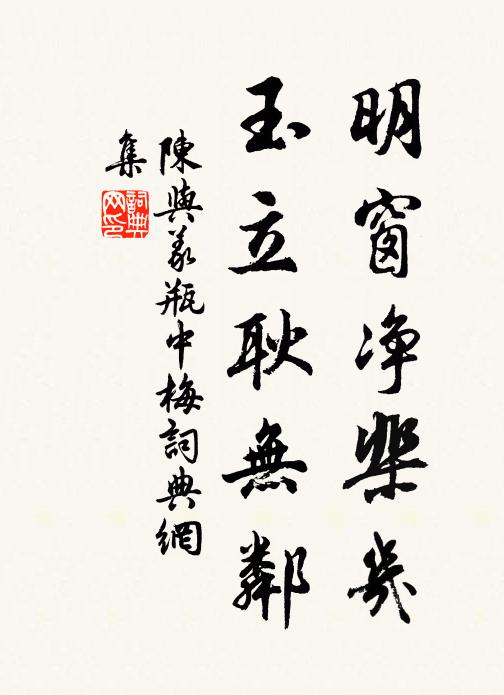 明窗净棐幾
玉立耿無鄰
陳與義瓶中梅詞典網
集
詞典
网印